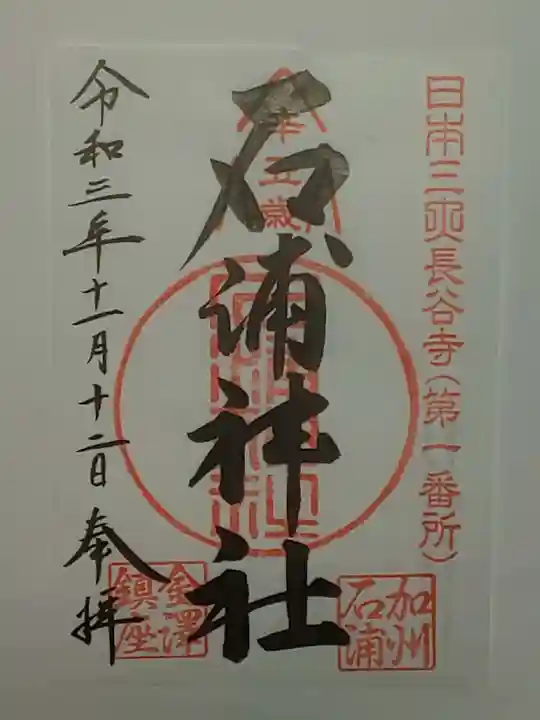 日本三大長谷寺(第一番所)
石浦神社
令和三年十一月十二日 奉拝
加州
石浦
金澤
鎮座